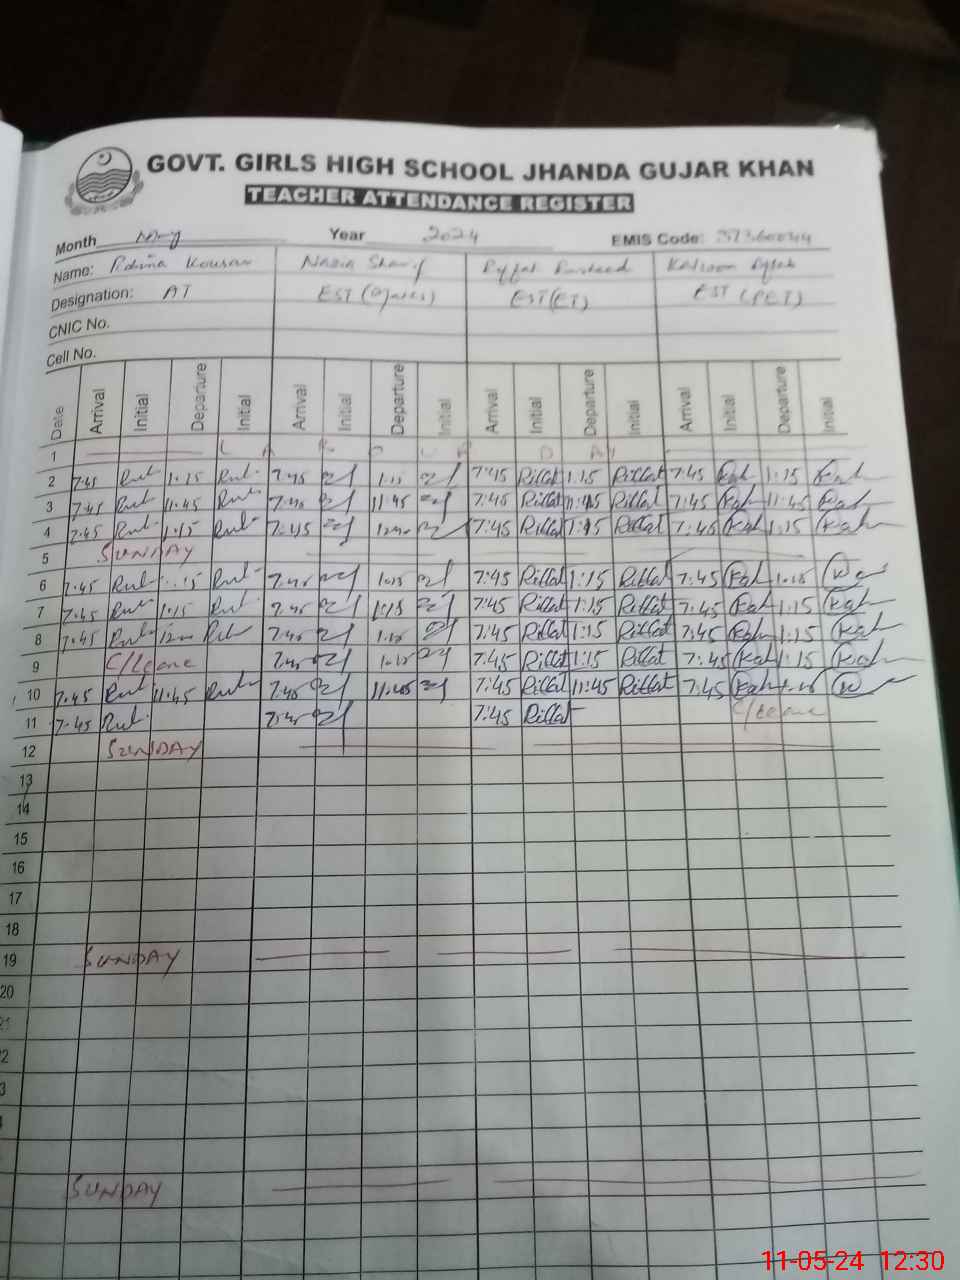 GOVT. GIRLS HIGH SCHOOL JHANDA GUJAR KHAN
TEACHER ATTENDANCE REGISTER
Month May Year 2024 EMIS Code:
Name: Kousar Nazia Sharif
Designation: AT EST EST(ET) EST (PET)
CNIC No.
Cell No.
Date Arrival Initial Departure Initial Arrival Initial Departure Initial Arrival Initial Departure Initial Arrival Initial Departure Initial
1 LABOUR DAY
2 7:45 Rub 1:15 Rub 7:45 1:15 7:45 Riffat 1:15 Riffat 7:45 Kah 1:15 Kah
3 7:45 Rub 11:45 Rub 7:45 11:45 7:45 Riffat 11:45 Riffat 7:45 Kah 11:45 Kah
4 7:45 Rub 1:15 Rub 7:45 7:45 Riffat 1:15 Riffat 7:45 Kah 1:15 Kah
5 SUNDAY
6 7:45 Rub 1:15 Rub 7:45 1:15 7:45 Riffat 1:15 Riffat 7:45 Kah 1:15
7 7:45 Rub 1:15 Rub 7:45 1:15 7:45 Riffat 1:15 Riffat 7:45 Kah 1:15 Kah
8 7:45 Rub Rub 7:45 1:15 7:45 Riffat 1:15 Riffat 7:45 Kah 1:15 Kah
9 C/Leave 7:45 1:15 7:45 Riffat 1:15 Riffat 7:45 Kah 1:15 Kah
10 7:45 Rub 11:45 Rub 7:45 11:45 7:45 Riffat 11:45 Riffat 7:45 Kah
11 7:45 Rub 7:45 7:45 Riffat C/Leave
12 SUNDAY
13
14
15
16
17
18
19 SUNDAY
20
21
2
3
SUNDAY
11-05-24 12:30